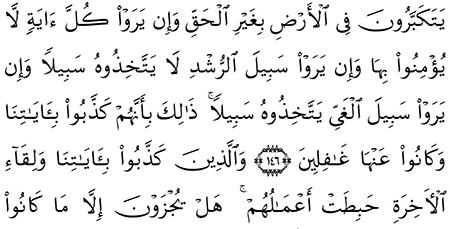 يَتَكَبَّرُونَ فِي ٱلۡأَرۡضِ بِغَيۡرِ ٱلۡحَقِّ وَإِن يَرَوۡاْ كُلَّ ءَايَةٖ لَّا
يُؤۡمِنُواْ بِهَا وَإِن يَرَوۡاْ سَبِيلَ ٱلرُّشۡدِ لَا يَتَّخِذُوهُ سَبِيلٗا وَإِن
يَرَوۡاْ سَبِيلَ ٱلۡغَيِّ يَتَّخِذُوهُ سَبِيلٗاۚ ذَٰلِكَ بِأَنَّهُمۡ كَذَّبُواْ بِـَٔايَٰتِنَا
وَكَانُواْ عَنۡهَا غَٰفِلِينَ ﴿١٤٦﴾ وَٱلَّذِينَ كَذَّبُواْ بِـَٔايَٰتِنَا وَلِقَآءِ
ٱلۡأٓخِرَةِ حَبِطَتۡ أَعۡمَٰلُهُمۡۚ هَلۡ يُجۡزَوۡنَ إِلَّا مَا كَانُواْ